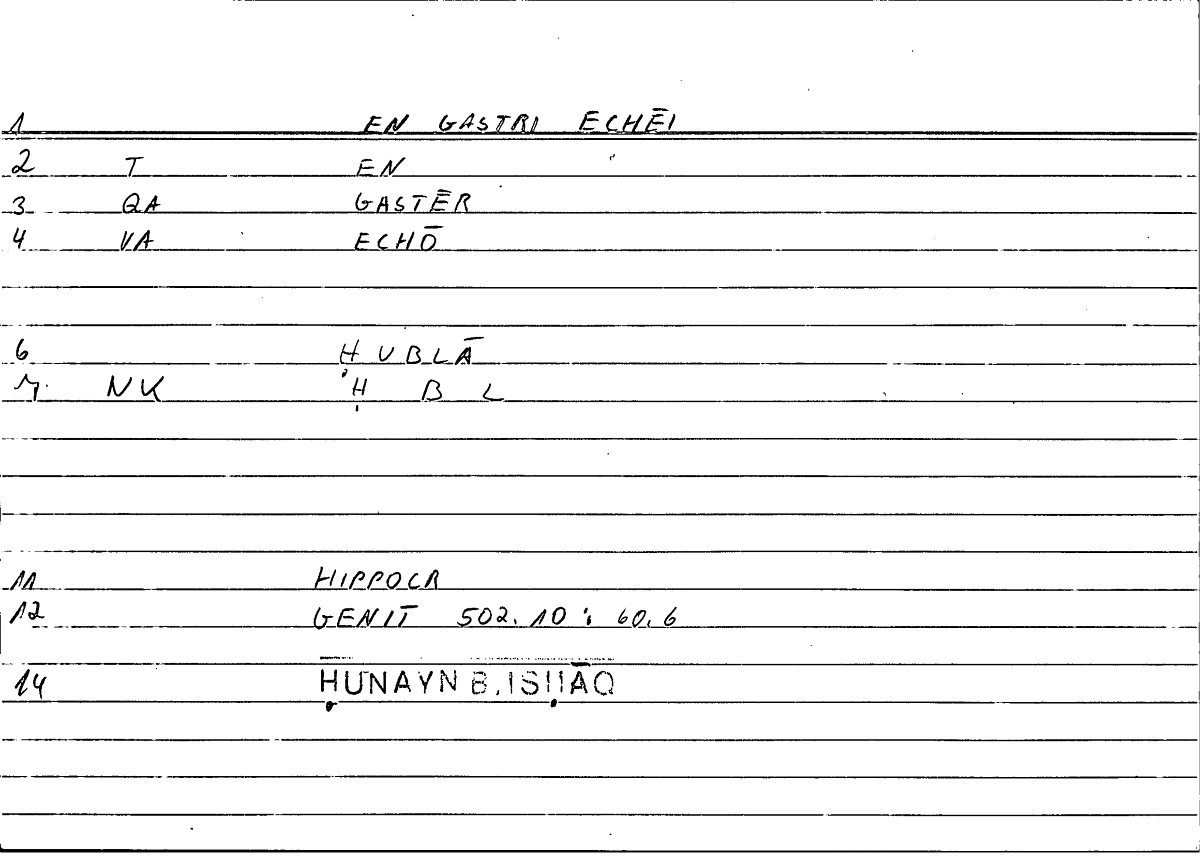 1 EN GASTRI ECHĒI
2 T EN
3 QA GASTĒR
4 VA ECHŌ
6 ḤUBLĀ
7 NK Ḥ B L
11 HIPPOCR
12 GENIT 502.10 : 60.6
14 ḤUNAYN B. ISḤĀQ